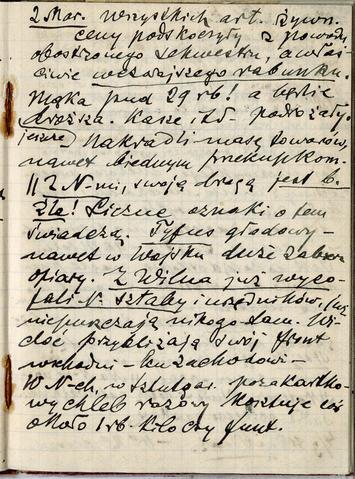 2 Mar. Wszystkich art. żywn.
ceny podskoczyły z powodu
obostrzonego sekwestru, a właś
ciwie wczorajszego rabunku.
Mąka pud 29 rb! a będzie
droższa. Kasze itd. podrożały
jeszcze) Nakradli masę towarów,
nawet biednym przekupkom.
|| Z N-mi, swoją drogą jest b.
źle! Liczne oznaki o tem
świadczą. Tyfus głodowy –
nawet w wojsku duże zabiera
ofiary. Z Wilna już wyco-
fali N. sztaby i urzędników,
nie puszczają nikogo tam. Wi-
doc przybliżają swój front
wschodni – ku zachodowi –
W N-ch, w Sztutgar. pozakartko-
wy chleb razowy kosztuje coś
około 1 rb. kilo czy funt.